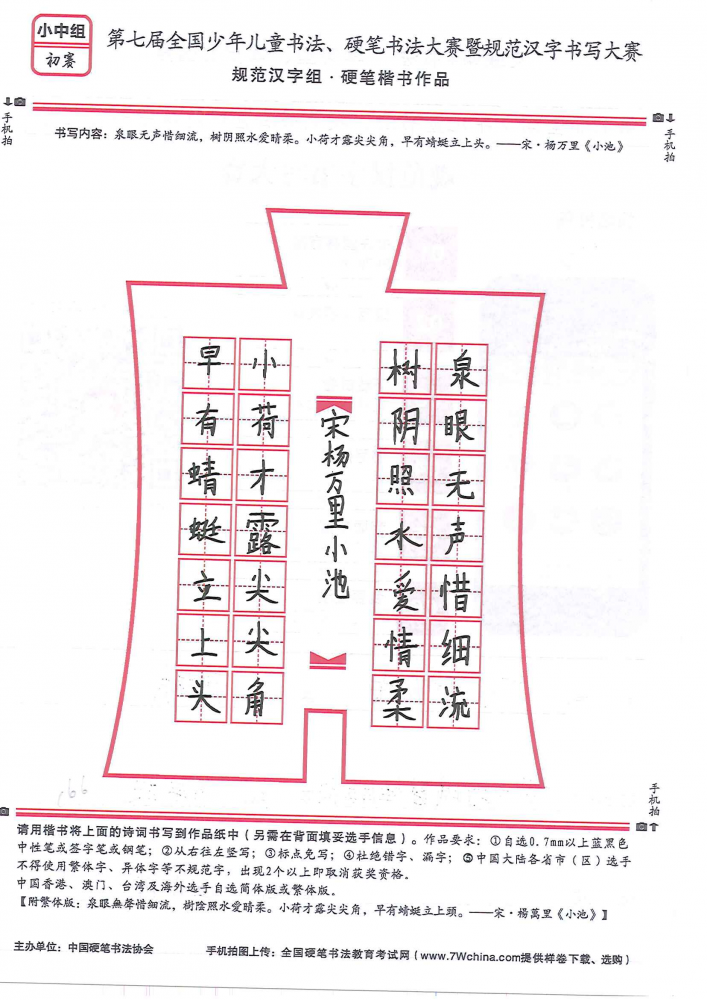 小中组
初赛
第七届全国少年儿童书法、硬笔书法大赛暨规范汉字书写大赛
规范汉字组·硬笔楷书作品
手机拍
手机拍
书写内容：泉眼无声惜细流，树阴照水爱晴柔。小荷才露尖尖角，早有蜻蜓立上头。——宋·杨万里《小池》
泉眼无声惜细流
树阴照水爱情柔
宋杨万里小池
小荷才露尖尖角
早有蜻蜓立上头
手机拍
请用楷书将上面的诗词书写到作品纸中（另需在背面填妥选手信息）。作品要求：①自选0.7mm以上蓝黑色
中性笔或签字笔或钢笔；②从右往左竖写；③标点免写；④杜绝错字、漏字；⑤中国大陆各省市（区）选手
不得使用繁体字、异体字等不规范字，出现2个以上即取消获奖资格。
中国香港、澳门、台湾及海外选手自选简体版或繁体版。
【附繁体版：泉眼無聲惜細流，樹陰照水愛晴柔。小荷才露尖尖角，早有蜻蜓立上頭。——宋·楊萬里《小池》】
主办单位：中国硬笔书法协会
手机拍图上传：全国硬笔书法教育考试网（www.7Wchina.com提供样卷下载、选购）